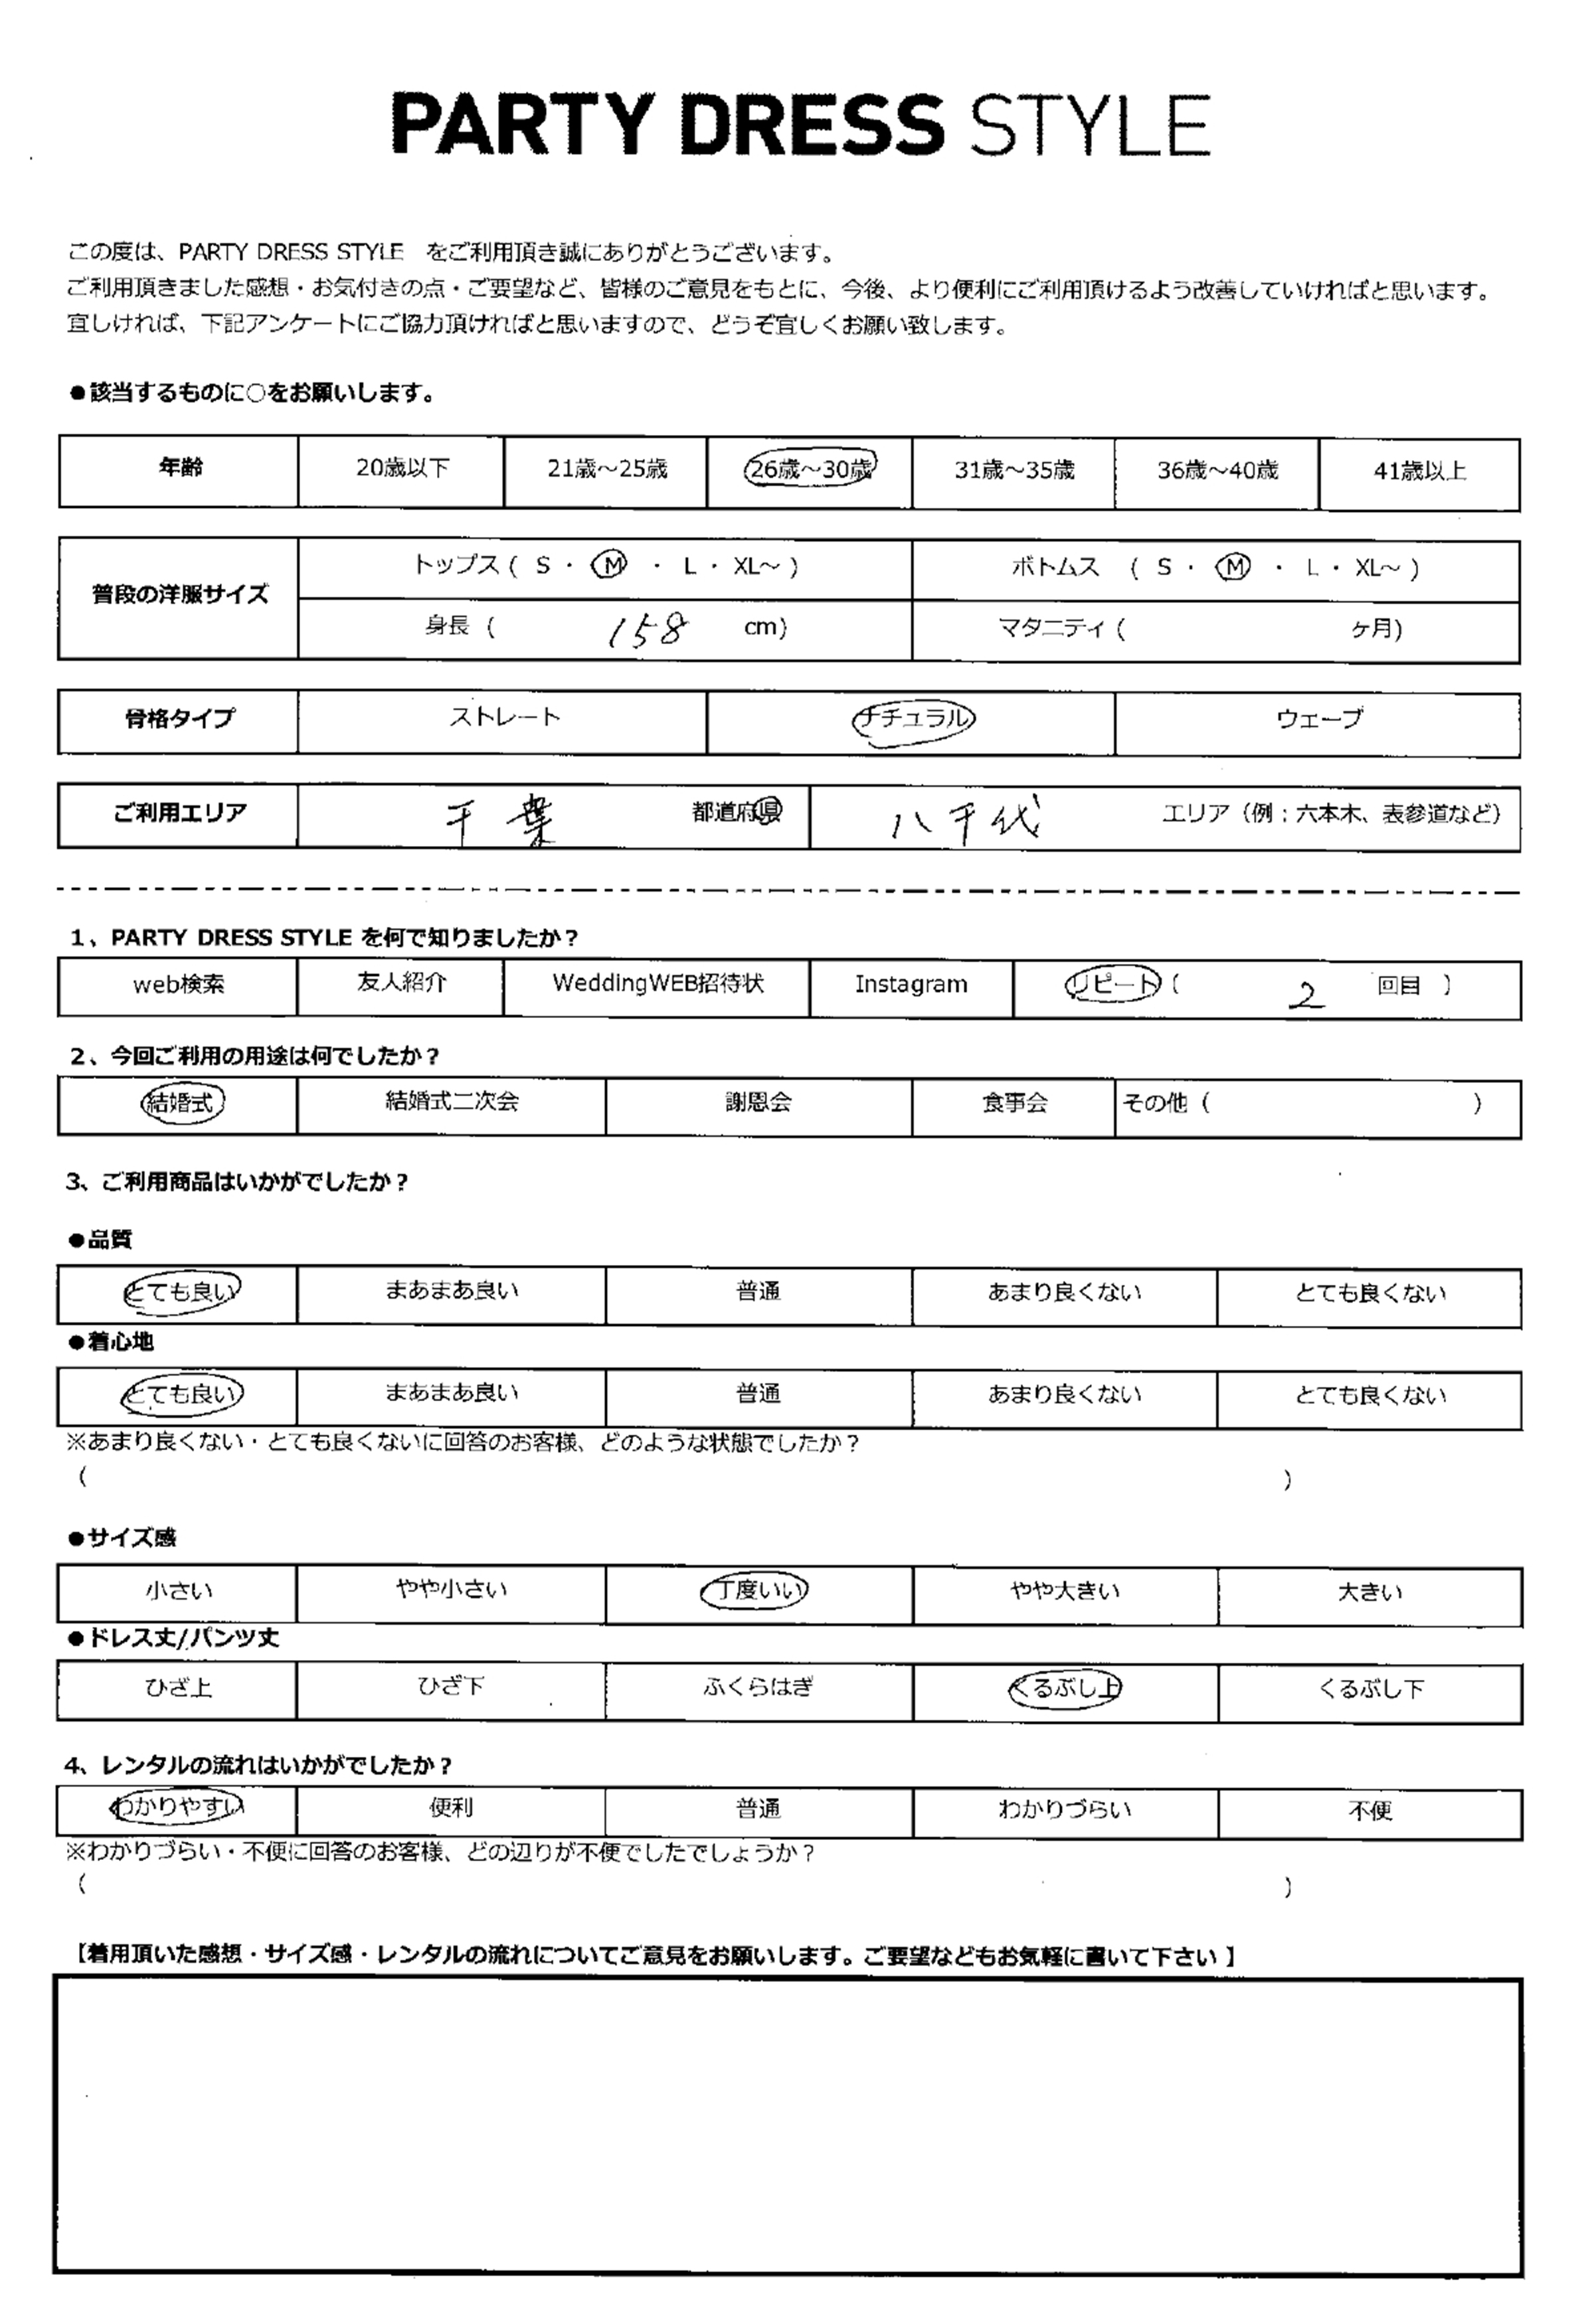 PARTY DRESS STYLE
この度は、PARTY DRESS STYLE をご利用頂き誠にありがとうございます。
ご利用頂きました感想・お気付きの点・ご要望など、皆様のご意見をもとに、今後、より便利にご利用頂けるよう改善していければと思います。
宜しければ、下記アンケートにご協力頂ければと思いますので、どうぞ宜しくお願い致します。
●該当するものに○をお願いします。
年齢 20歳以下 21歳～25歳 26歳～30歳 31歳～35歳 36歳～40歳 41歳以上
普段の洋服サイズ トップス ( S ・ M ・ L ・ XL～ ) ボトムス ( S ・ M ・ L ・ XL～ )
身長 ( 158 cm) マタニティ ( ヶ月)
骨格タイプ ストレート ナチュラル ウェーブ
ご利用エリア 千葉 都道府県 八千代 エリア（例：六本木、表参道など）
1、PARTY DRESS STYLE を何で知りましたか？
web検索 友人紹介 WeddingWEB招待状 Instagram リピート ( 2 回目 )
2、今回ご利用の用途は何でしたか？
結婚式 結婚式二次会 謝恩会 食事会 その他 ( )
3、ご利用商品はいかがでしたか？
●品質
とても良い まあまあ良い 普通 あまり良くない とても良くない
●着心地
とても良い まあまあ良い 普通 あまり良くない とても良くない
※あまり良くない・とても良くないに回答のお客様、どのような状態でしたか？
( )
●サイズ感
小さい やや小さい 丁度いい やや大きい 大きい
●ドレス丈/パンツ丈
ひざ上 ひざ下 ふくらはぎ くるぶし上 くるぶし下
4、レンタルの流れはいかがでしたか？
わかりやすい 便利 普通 わかりづらい 不便
※わかりづらい・不便に回答のお客様、どの辺りが不便でしたでしょうか？
( )
【着用頂いた感想・サイズ感・レンタルの流れについてご意見をお願いします。ご要望などもお気軽に書いて下さい 】